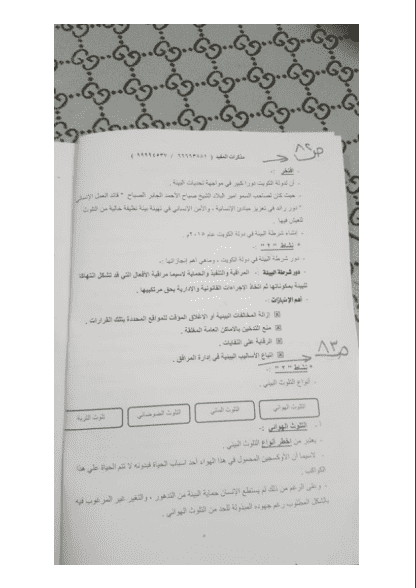 ص ٨٢
مذكرات المفيد ( ٦٦٦٦٣٤٨١ / ٩٩٩٩٤٥٣٧ )
- أفتخر :-
- أن لدولة الكويت دورا كبير في مواجهة تحديات البيئة .
- حيث كان لصاحب السمو أمير البلاد الشيخ صباح الأحمد الجابر الصباح " قائد العمل الإنساني
" دور رائد في تعزيز مبادئ الإنسانية ، والأمن الإنساني في تهيئة بيئة نظيفة خالية من التلوث
للعيش فيها .
- إنشاء شرطة البيئة في دولة الكويت عام ٢٠١٥م .
* نشاط " ٢ " *
- دور شرطة البيئة في دولة الكويت ، وماهي أهم إنجازاتها :-
- دور شرطة البيئة :- المراقبة والتنفيذ والحماية لاسيما مراقبة الأفعال التي قد تشكل انتهاكا
للبيئة بمكوناتها ثم اتخاذ الاجراءات القانونية والإدارية بحق مرتكبيها .
- أهم الإنجازات :-
إزالة المخالفات البيئية او الاغلاق المؤقت للمواقع المحددة بتلك القرارات .
منع التدخين بالأماكن العامة المغلقة .
الرقابة على النفايات .
اتباع الأساليب البيئية في إدارة المرافق .
ص ٨٣
* نشاط " ٣ " *
- أنواع التلوث البيئي .
التلوث الهوائي
التلوث المائي
التلوث الضوضائي
تلوث التربة
١- التلوث الهوائي :-
- يعتبر من أخطر أنواع التلوث البيئي .
- لاسيما أن الأوكسجين المحمول في هذا الهواء أحد أسباب الحياة فبدونه لا تتم الحياة على هذا
الكوكب .
- وعلى الرغم من ذلك لم يستطع الإنسان حماية البيئة من التدهور ، والتغير غير المرغوب فيه
بالشكل المطلوب رغم جهوده المبذولة للحد من التلوث الهوائي .